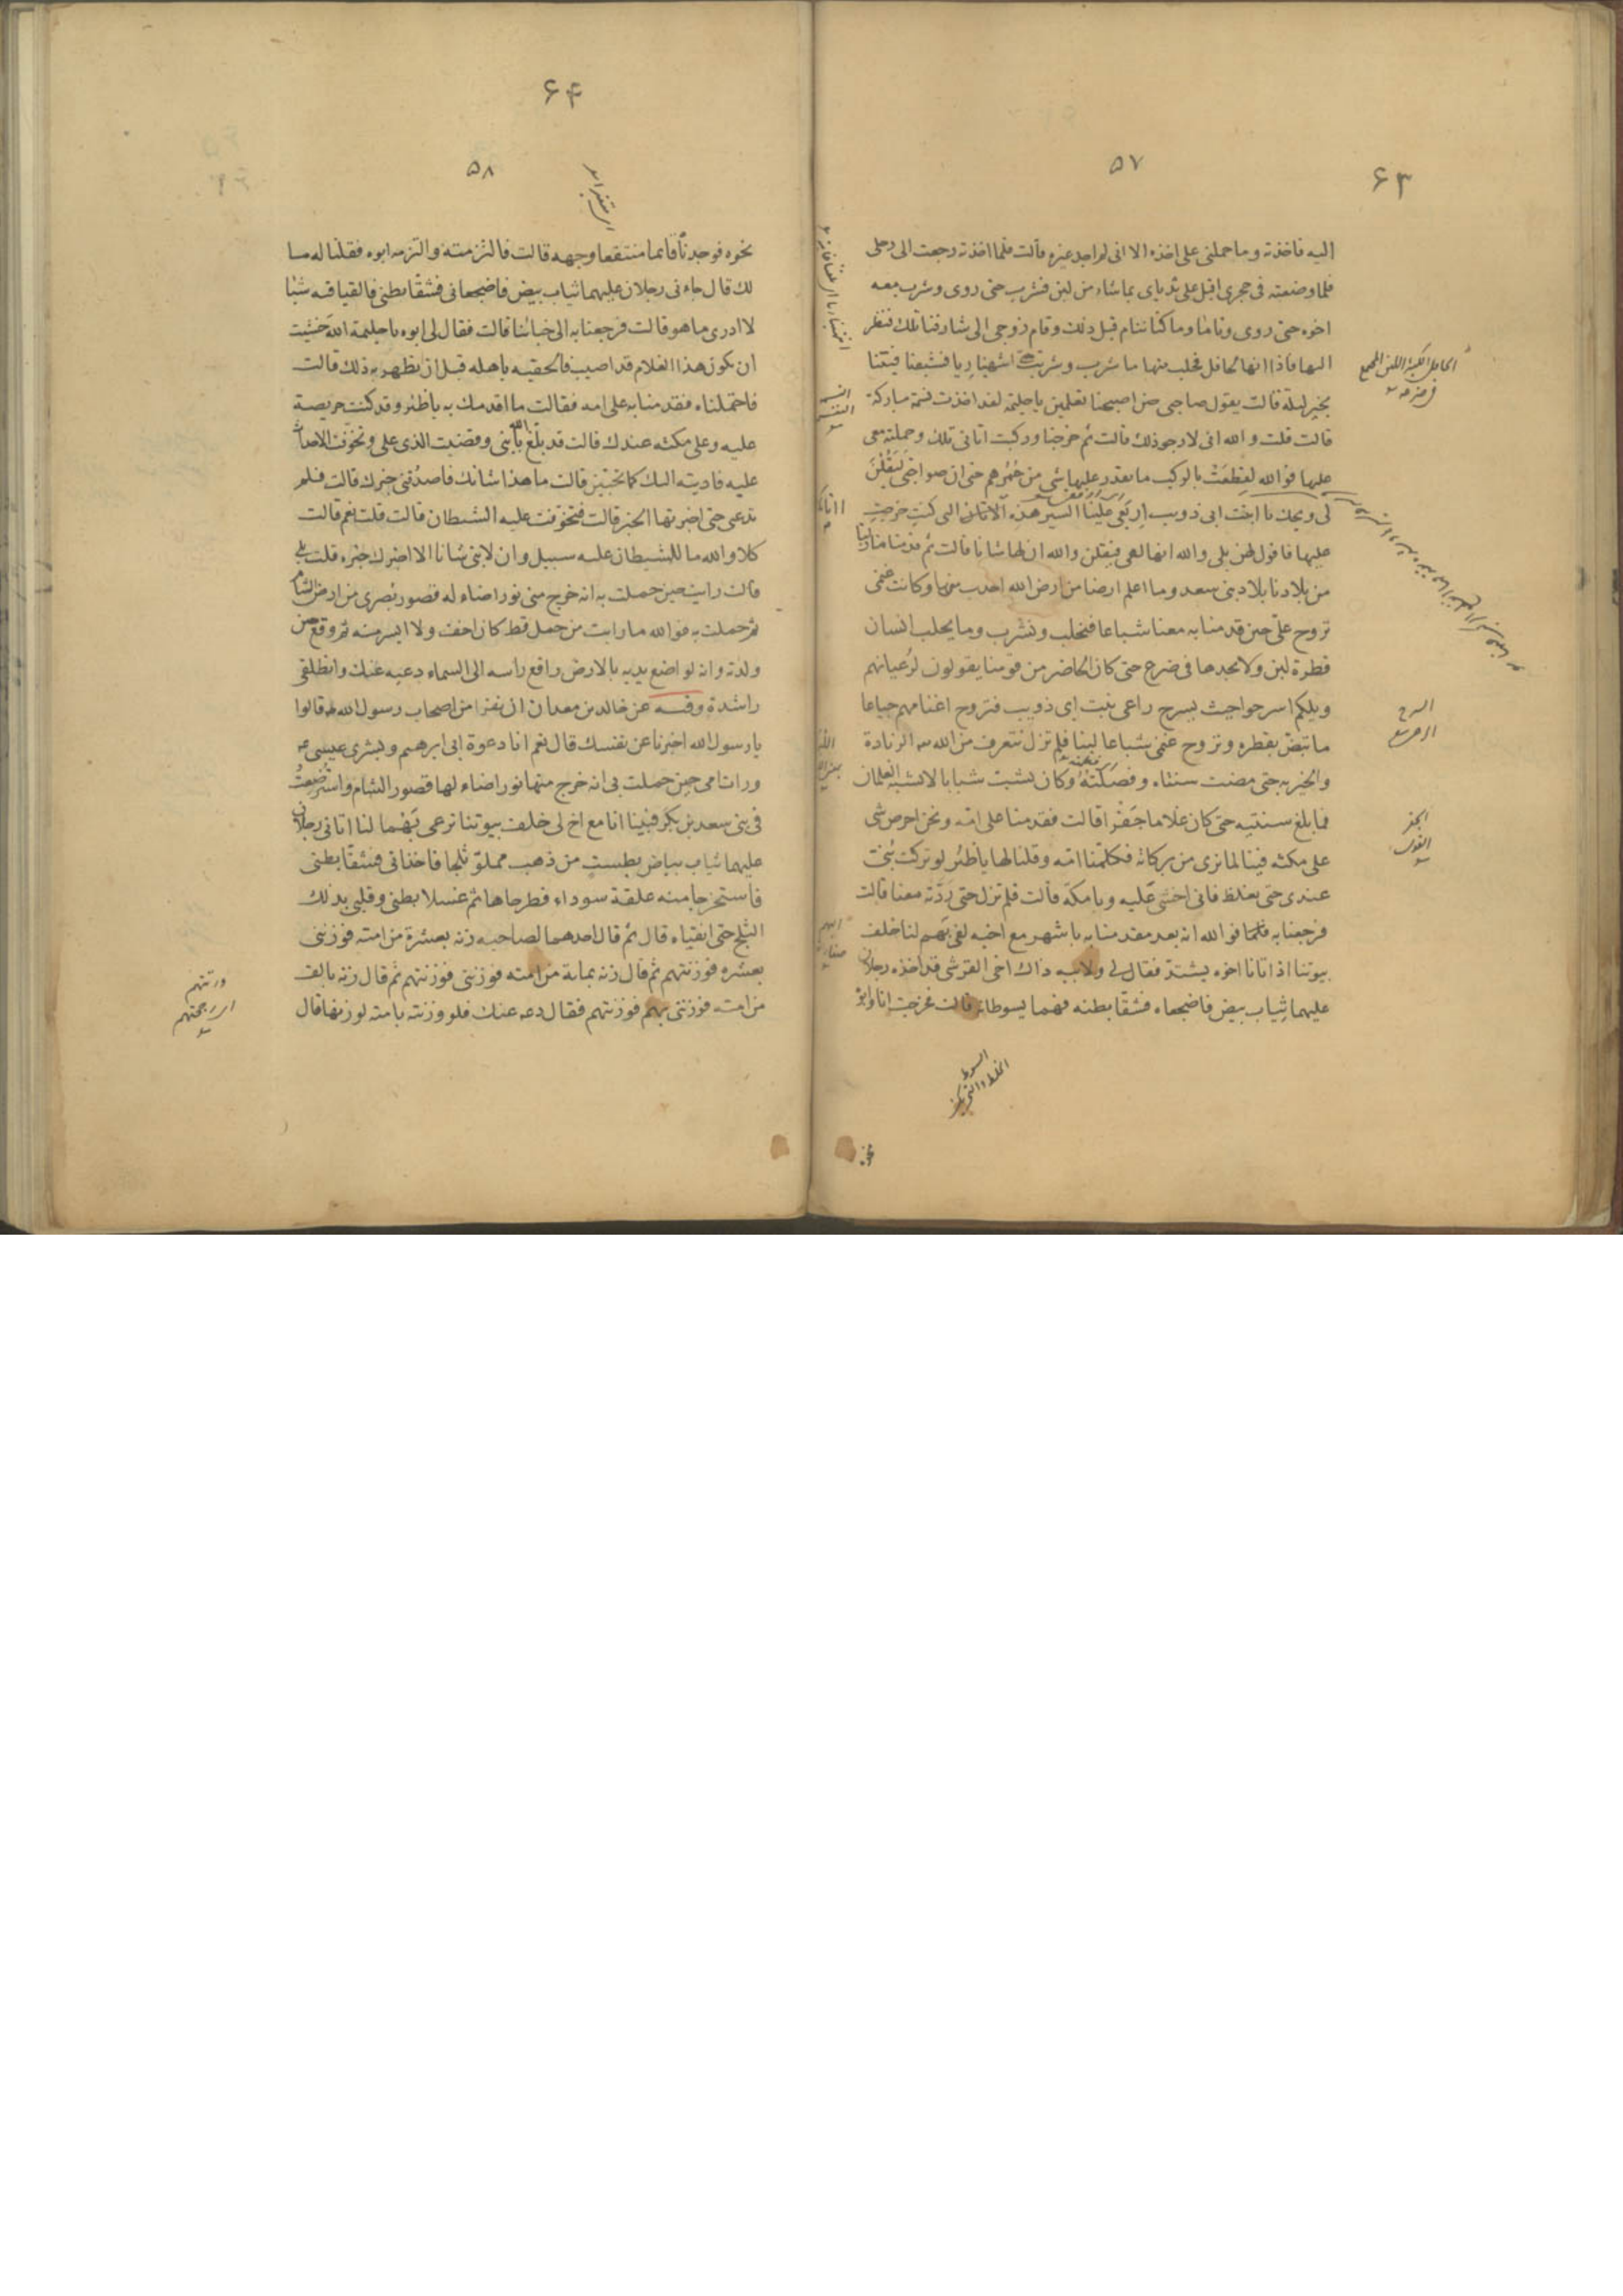 ۶۳
۵۷
اليه فاخذته وما حملنى على اخذه الا انى لم اجد غيره قالت فلما اخذته رجعت الى رحلى
فلما وضعته فى حجرى اقبل على ثدياى بما شاء من لبن فشرب حتى روى وشرب معه
اخوه حتى روى وناما وما كنا ننام قبل ذلك وقام زوجى الى شارفنا تلك فنظر
اليها فاذا انها لحافل فحلب منها ما شرب وشربت حتى انتهينا ريا فشبعنا فبتنا
بخير ليلة قالت يقول صاحبى حين اصبحنا تعلمين يا حليمة لقد اخذت نسمة مباركة
قالت قلت والله انى لارجو ذلك قالت ثم خرجنا وركبت اتانى تلك وحملته معى
عليها فوالله لقطعت بالركب ما يقدر عليها شى من حمرهم حتى ان صواحبى ليقلن
لى ويحك يا ابنت ابى ذويب اربعى علينا السير هذه الاتان التى كنت خرجت
عليها فاقول لهن بلى والله انها لهى فيقلن والله ان لها شانا قالت ثم قدمنا منازلنا
من بلادنا بلاد بنى سعد وما اعلم ارضا من ارض الله اجدب منها وكانت غنمى
تروح على حين قدمنا به معنا شباعا فنحلب ونشرب وما يحلب انسان
قطرة لبن ولا يجدها فى ضرع حتى كان الحاضر من قومنا يقولون لرعيانهم
ويلكم اسرحوا حيث يسرح راعى بنت ابى ذويب فتروح اغنامهم جياعا
ما تبض بقطره وتروح غنمى شباعا لبنا فلم نزل نتعرف من الله الزيادة
والخير به حتى مضت سنتاه وفصلته وكان يشب شبابا لا يشبه الغلمان
فما بلغ سنتيه حتى كان غلاما جفرا قالت فقدمنا على امه ونحن احرص شى
على مكثه فينا لما نرى من بركاته فكلمنا امه وقلنا لها يا ظئر لو تركت بنى
عندى حتى يغلظ فانى اخشى عليه وبا مكة قالت فلم نزل حتى ردته معنا قالت
فرجعنا به فلما فوالله انه بعد مقدمنا به باشهر مع اخيه لفى بهم لنا خلف
بيوتنا اذ اتانا اخوه يشتد فقال لى ولابيه ذاك اخى القرشى قد اخذه رجلان
عليهما ثياب بيض فاضجعاه فشقا بطنه فهما يسوطانه قالت فخرجت انا وابوه
الحافل الكثيرة اللبن المجمع فى ضرعه
النسمة النفس
السرح
الجفر القوى
السوط
الخلط والتحريك
نحوه
۶۴
۵۸
نحوه فوجدناه قائما منتقعا وجهه قالت فالتزمته والتزمه ابوه فقلنا له ما
لك قال جاءنى رجلان عليهما ثياب بيض فاضجعانى فشقا بطنى فالقيا فيه شيئا
لا ادرى ما هو قالت فرجعنا به الى خبائنا قالت فقال لى ابوه يا حليمة الله خشيت
ان يكون هذا الغلام قد اصيب فالحقيه باهله قبل ان يظهر به ذلك قالت
فاحتملناه فقدمنا به على امه فقالت ما اقدمك به يا ظئر وقد كنت حريصة
عليه وعلى مكثه عندك قالت قد بلغ الله بابنى وقضيت الذى على وتخوفت الاحداث
عليه فاديته اليك كما تحبين قالت ما هذا شانك فاصدقنى خبرك قالت فلم
تدعى حتى اخبرتها الخبر قالت فتخوفت عليه الشيطان قالت قلت نعم قالت
كلا والله ما للشيطان عليه سبيل وان لابنى شانا الا اخبرك خبره قلت بلى
قالت رايت حين حملت به انه خرج منى نور اضاء له قصور بصرى من ارض الشام
ثم حملت به فوالله ما رايت من حمل قط كان اخف ولا ايسر منه ثم وقع حين
ولدته وانه لواضع يديه بالارض رافع راسه الى السماء دعيه عنك وانطلقى
راشدة وفيه عن خالد بن معدان ان نفرا من اصحاب رسول الله قالوا
يا رسول الله اخبرنا عن نفسك قال نعم انا دعوة ابى ابرهيم وبشرى عيسى
ورات امى حين حملت بى انه خرج منها نور اضاء لها قصور الشام واسترضعت
فى بنى سعد بن بكر فبينا انا مع اخ لى خلف بيوتنا نرعى بهما لنا اتانى رجلان
عليهما ثياب بياض بطست من ذهب مملو ثلجا فاخذانى فشقا بطنى
فاستخرجا منه علقة سوداء فطرحاها ثم غسلا بطنى وقلبى بذلك
الثلج حتى انقياه قال ثم قال احدهما لصاحبه زنه بعشرة من امته فوزننى
بعشرة فوزنتهم ثم قال زنه بماية من امته فوزننى فوزنتهم ثم قال زنه بالف
من امته فوزننى بهم فوزنتهم فقال دعه عنك فلو وزنته بامته لوزنها قال
وزنتهم
اى رجحتهم